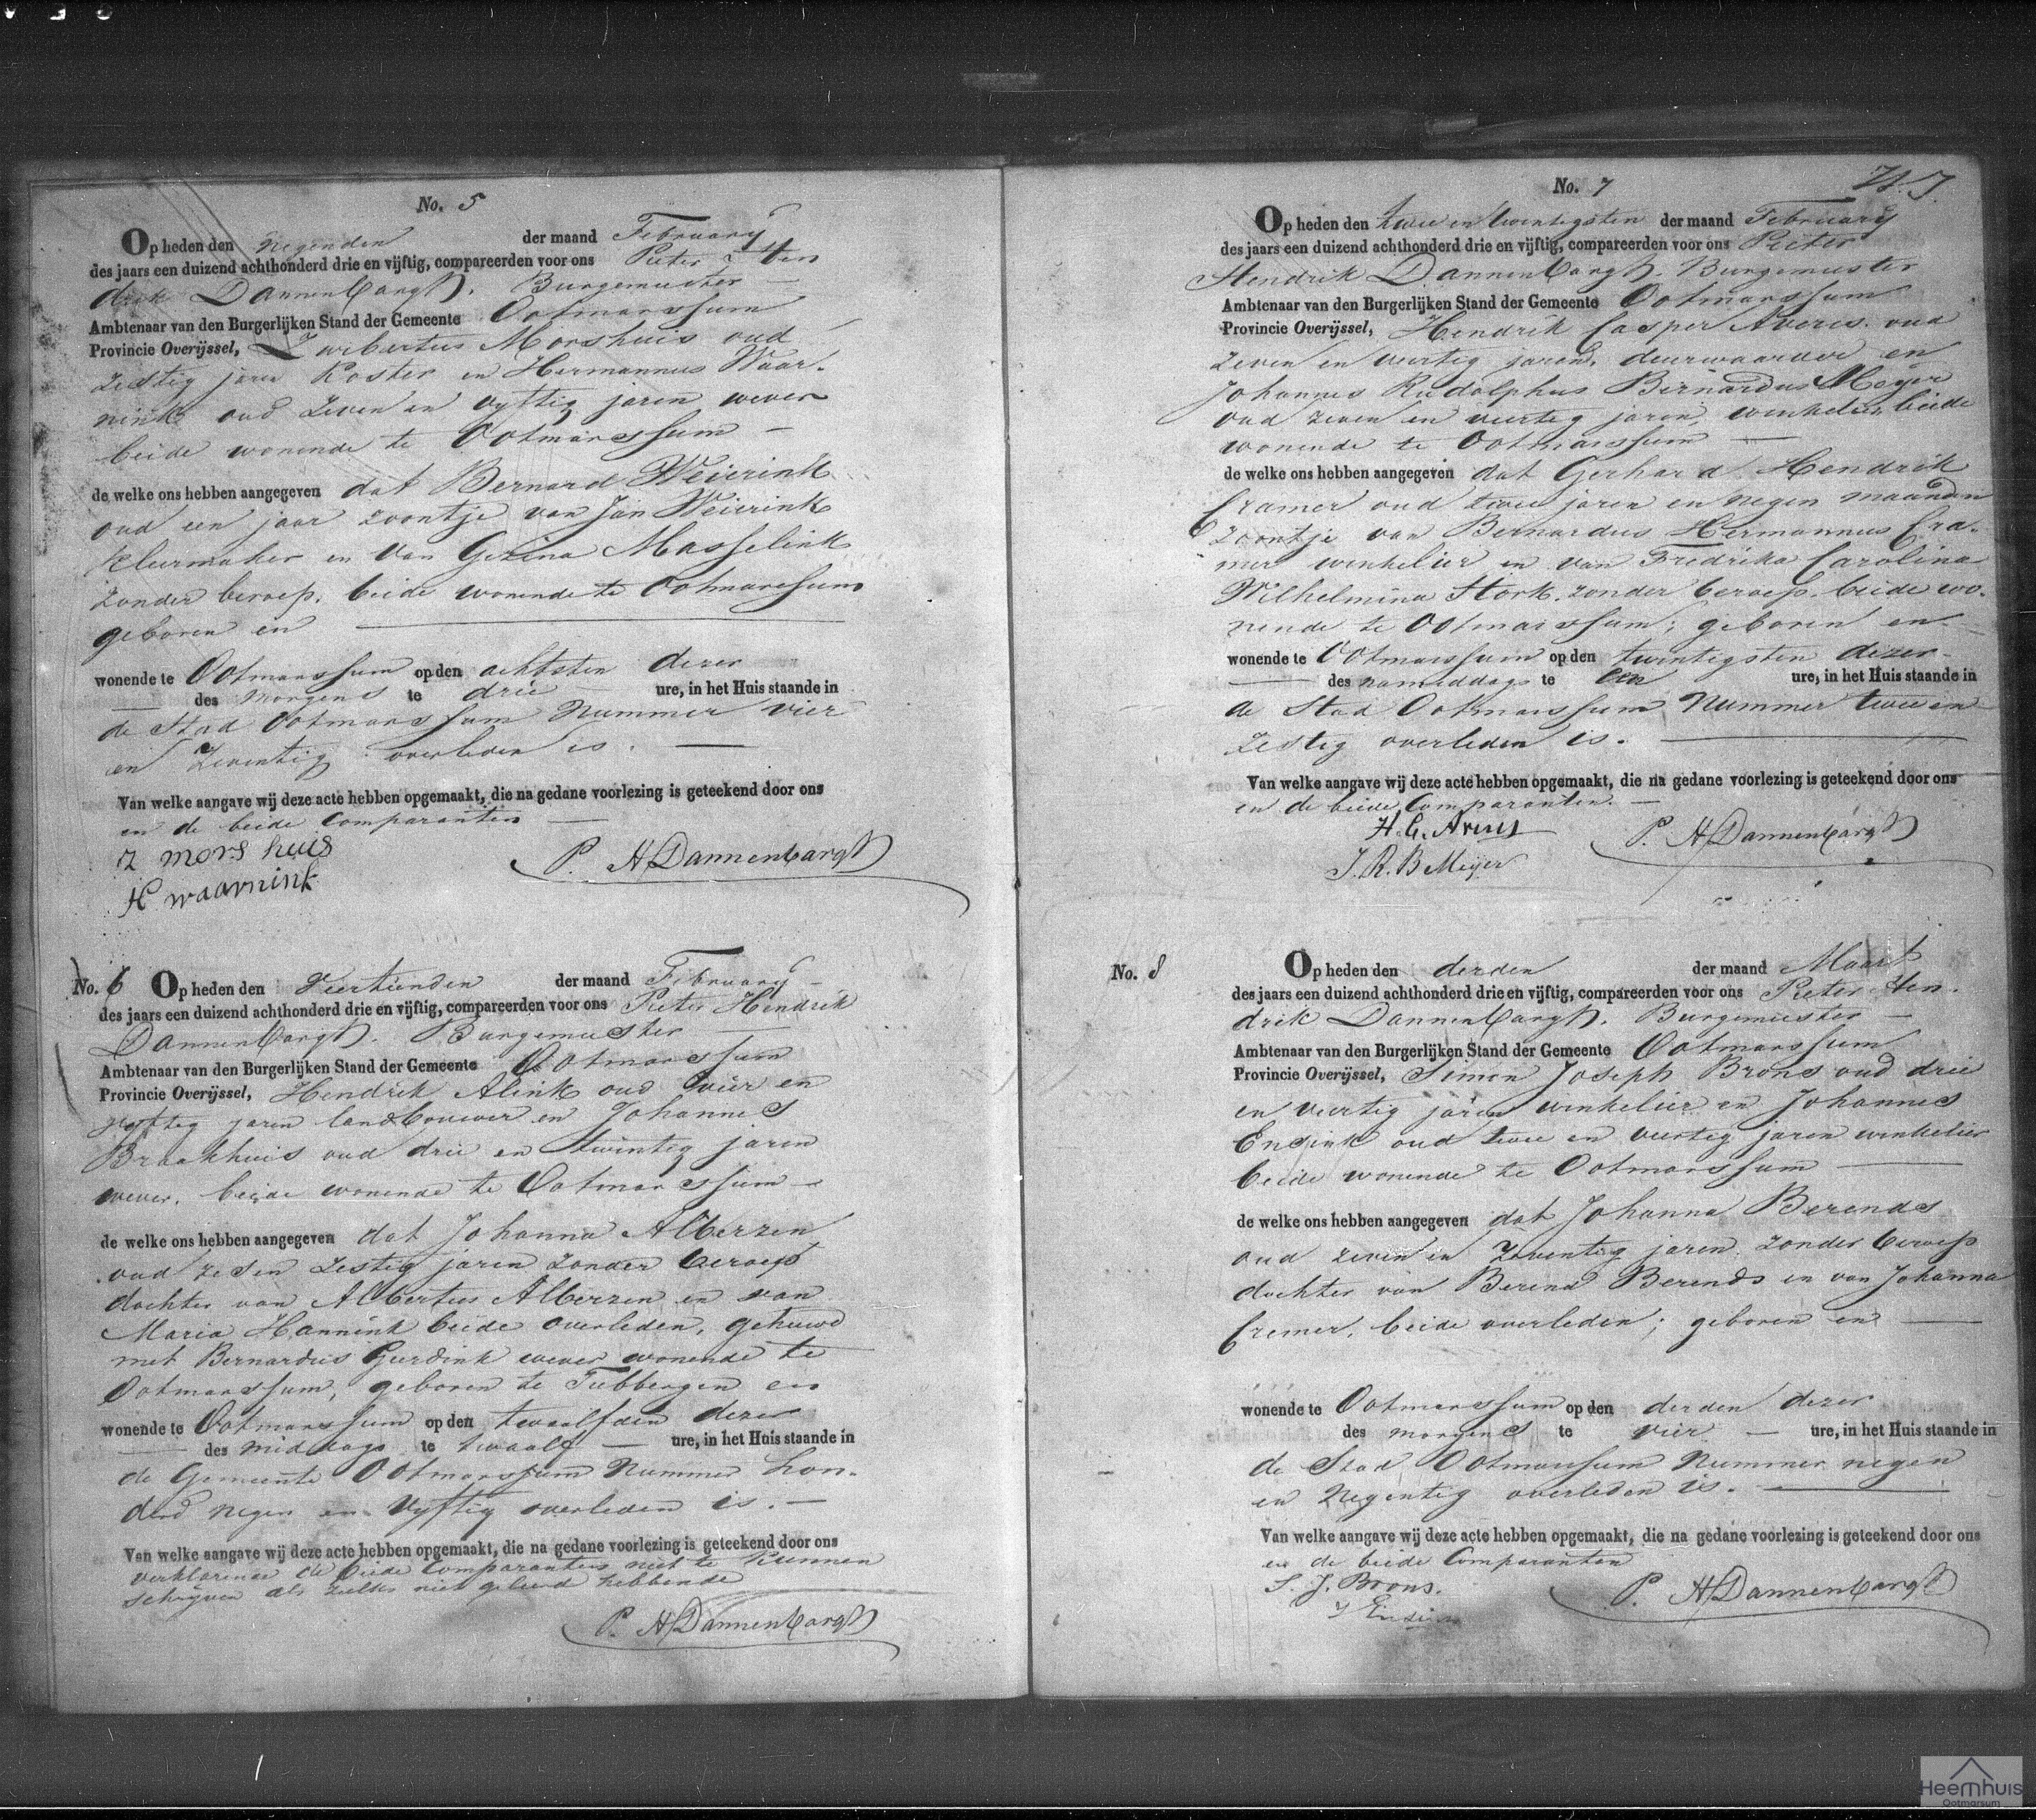 No. 5
Op heden den negenden der maand February
des jaars een duizend achthonderd drie en vijftig, compareerden voor ons Pieter Hen
drik Dannenbargh. Burgemeester
Ambtenaar van den Burgerlijken Stand der Gemeente Ootmarssum
Provincie Overijssel, Morshuis oud
zestig jaren Koster en Hermannus Waar-
nink oud zeven en vyftig jaren wever
beide wonende te Ootmarssum
de welke ons hebben aangegeven dat Bernard Weierink
oud een jaar zoontje van Jan Weierink
kleermaker en van Gezina Masselink
zonder beroep, beide wonende te Ootmarssum
geboren en
wonende te Ootmarssum op den achtsten dezer
des morgens te drie ure, in het Huis staande in
de Stad Ootmarssum Nummer vier
en zeventig overleden is.
Van welke aangave wij deze acte hebben opgemaakt, die na gedane voorlezing is geteekend door ons
en de beide Comparanten
z morshuis
H waarnink
P. H Dannenbargh
No. 6 Op heden den Veertienden der maand February
des jaars een duizend achthonderd drie en vijftig, compareerden voor ons Pieter Hendrik
Dannenbargh. Burgemeester
Ambtenaar van den Burgerlijken Stand der Gemeente Ootmarssum
Provincie Overijssel, Hendrik Alink oud vier en
vyftig jaren landbouwer en Johannes
Braakhuis oud drie en twintig jaren
wever, beide wonende te Ootmarssum
de welke ons hebben aangegeven dat Johanna Alberzen
oud zes en zestig jaren zonder beroep
dochter van Albertus Alberzen en van
Maria Hannink beide overleden, gehuwd
met Bernardus Geerdink wever wonende te
Ootmarssum, geboren te Tubbergen en
wonende te Ootmarssum op den twaalfden dezer
des middags te twaalf ure, in het Huis staande in
de Gemeente Ootmarssum Nummer hon-
derd negen en vyftig overleden is.
Van welke aangave wij deze acte hebben opgemaakt, die na gedane voorlezing is geteekend door ons
verklarende de beide Comparanten niet te kunnen
schryven als zulks niet geleerd hebbende
P. H Dannenbargh
No. 7
Op heden den twee en twintigsten der maand February
des jaars een duizend achthonderd drie en vijftig, compareerden voor ons Pieter
Hendrik Dannenbargh. Burgemeester
Ambtenaar van den Burgerlijken Stand der Gemeente Ootmarssum
Provincie Overijssel, Hendrik Casper Averes oud
zeven en veertig jaren, deurwaarder en
Johannes Rudolphus Bernardus Meijer
oud zeven en veertig jaren, winkelier beide
wonende te Ootmarssum
de welke ons hebben aangegeven dat Gerhard Hendrik
Cramer oud twee jaren en negen maanden
zoontje van Bernardus Hermannus Cra-
mer winkelier en van Fredrika Carolina
Wilhelmina Stork, zonder beroep, beide wo-
nende te Ootmarssum; geboren en
wonende te Ootmarssum op den twintigsten dezer
des namiddags te een ure, in het Huis staande in
de Stad Ootmarssum Nummer twee en
zestig overleden is.
Van welke aangave wij deze acte hebben opgemaakt, die na gedane voorlezing is geteekend door ons
en de beide Comparanten.
H. C. Averes
J. R. B Meijer
P. H Dannenbargh
No. 8 Op heden den derden der maand Maart
des jaars een duizend achthonderd drie en vijftig, compareerden voor ons Pieter Hen-
drik Dannenbargh. Burgemeester
Ambtenaar van den Burgerlijken Stand der Gemeente Ootmarssum
Provincie Overijssel, Simon Joseph Brons oud drie
en veertig jaren winkelier en Johannes
Ensink oud twee en veertig jaren winkelier
beide wonende te Ootmarssum
de welke ons hebben aangegeven dat Johanna Berends
oud zeven en zeventig jaren zonder beroep
dochter van Berend Berends en van Johanna
Cremer, beide overleden; geboren en
wonende te Ootmarssum op den derden dezer
des morgens te vier ure, in het Huis staande in
de Stad Ootmarssum Nummer negen
en negentig overleden is.
Van welke aangave wij deze acte hebben opgemaakt, die na gedane voorlezing is geteekend door ons
en de beide Comparanten
S. J. Brons.
J Ensink
P. H Dannenbargh
Heemhuis
Ootmarsum